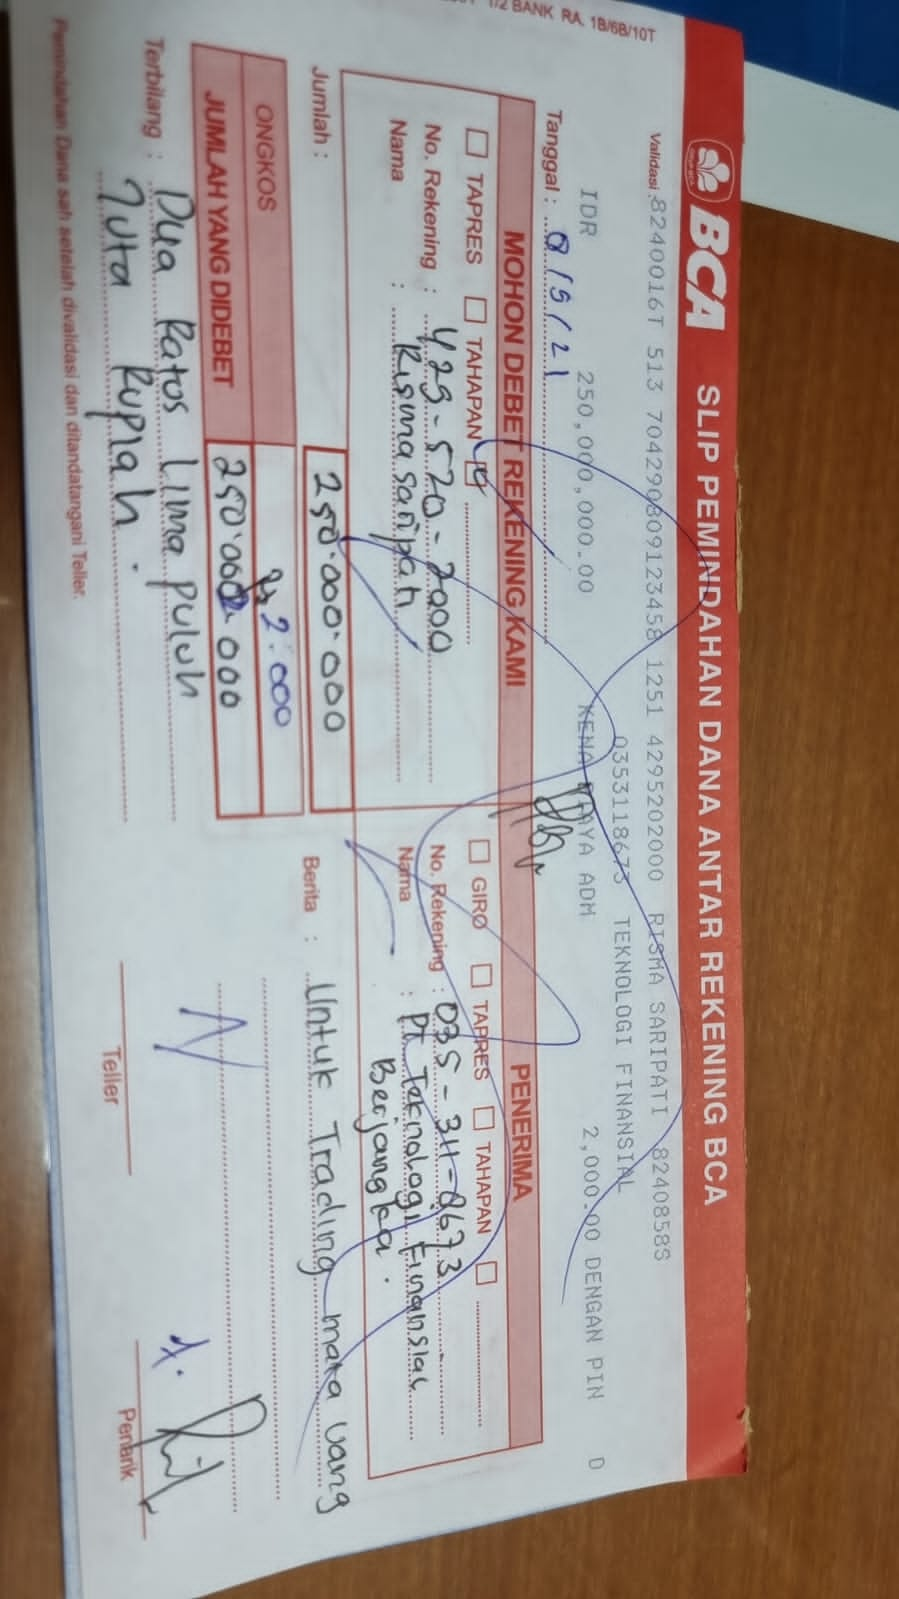 1/2 BANK RA. 1B/6B/10T
BCA SLIP PEMINDAHAN DANA ANTAR REKENING BCA
Validasi : 8240016T 513 704290809123458 1251 4295202000 RISMA SARIPATI 8240858S
0353118673 TEKNOLOGI FINANSIAL
IDR 250,000,000.00 KENA BIAYA ADM 2,000.00 DENGAN PIN D
Tanggal :
MOHON DEBET REKENING KAMI
TAPRES TAHAPAN
No. Rekening : 429-520-2000
Nama : Risma saripati
PENERIMA
GIRO TAPRES TAHAPAN
No. Rekening : 035-311-8673
Nama : PT Teknologi Finansial
Berjangka.
Jumlah : 250.000.000
ONGKOS 2.000
JUMLAH YANG DIDEBET
Terbilang : Dua Ratus Lima puluh
Juta Rupiah.
Berita : Untuk Trading mata uang
Teller
Penarik
Pemindahan Dana sah setelah divalidasi dan ditandatangani Teller.